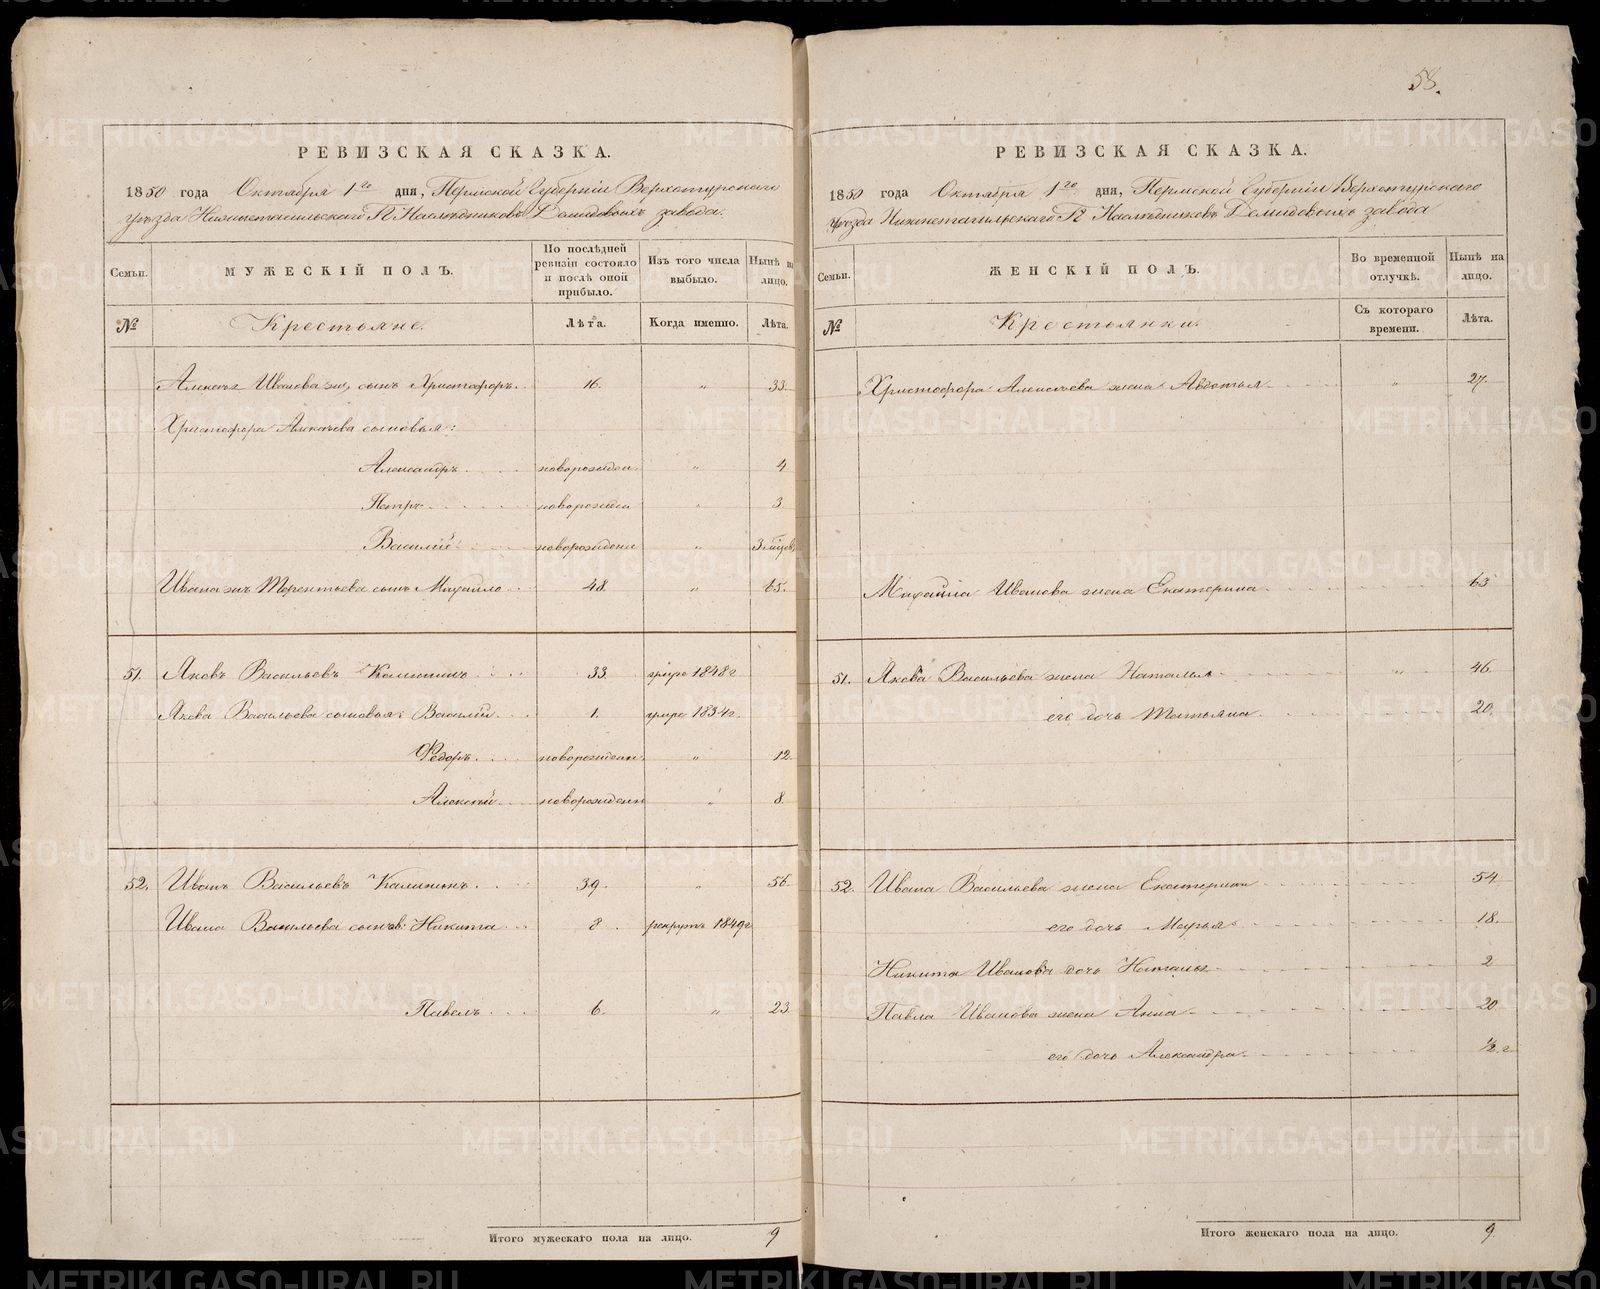 58.
РЕВИЗСКАЯ СКАЗКА.
1850 года Октября 1го дня, Пермской Губерніи Верхотурскаго
уѣзда Нижнетагильскаго Гг. Наслѣдниковъ Демидовыхъ завода.
Семьи.
МУЖЕСКІЙ ПОЛЪ.
По послѣдней ревизіи состояло и послѣ оной прибыло.
Изъ того числа выбыло.
Нынѣ на лицо.
№
Крестьяне.
Лѣта.
Когда именно.
Лѣта.
Алексѣя Иванова сынъ Христофоръ 16. " 33.
Христофора Алексѣева сыновья:
Александръ новорожден. " 4
Петръ новорожден " 3
Василій новорожденн " 3 мѣсяц.
Ивана Терентьева сынъ Михайло 48. " 65.
51. Яковъ Васильевъ Калининъ 33. умре 1848г
Якова Васильева сыновья: Василій 1. умре 1834г.
Ѳедоръ новорожденн. " 12.
Алексѣй новорожденн " 8.
52. Иванъ Васильевъ Калининъ. 39. " 56.
Ивана Васильева сынов: Никита 8. рекрутъ 1849г
Павелъ 6. " 23.
Итого мужескаго пола на лицо. 9
РЕВИЗСКАЯ СКАЗКА.
1850 года Октября 1го дня, Пермской Губерніи Верхотурскаго
уѣзда Нижнетагильскаго Гг. Наслѣдниковъ Демидовыхъ завода
Семьи.
ЖЕНСКІЙ ПОЛЪ.
Во временной отлучкѣ.
Нынѣ на лицо.
№
Крестьянки.
Съ котораго времени.
Лѣта.
Христофора Алексѣева жена Авдотья " 27.
Михайла Иванова жена Екатерина 63
51. Якова Васильева жена Наталья " 46.
его дочь Татьяна 20.
52. Ивана Васильева жена Екатерина 54
его дочь Марья 18.
Никиты Иванова дочь Наталья 2
Павла Иванова жена Анна 20.
его дочь Александра ½ г
Итого женскаго пола на лицо. 9.
METRIKI.GASO-URAL.RU